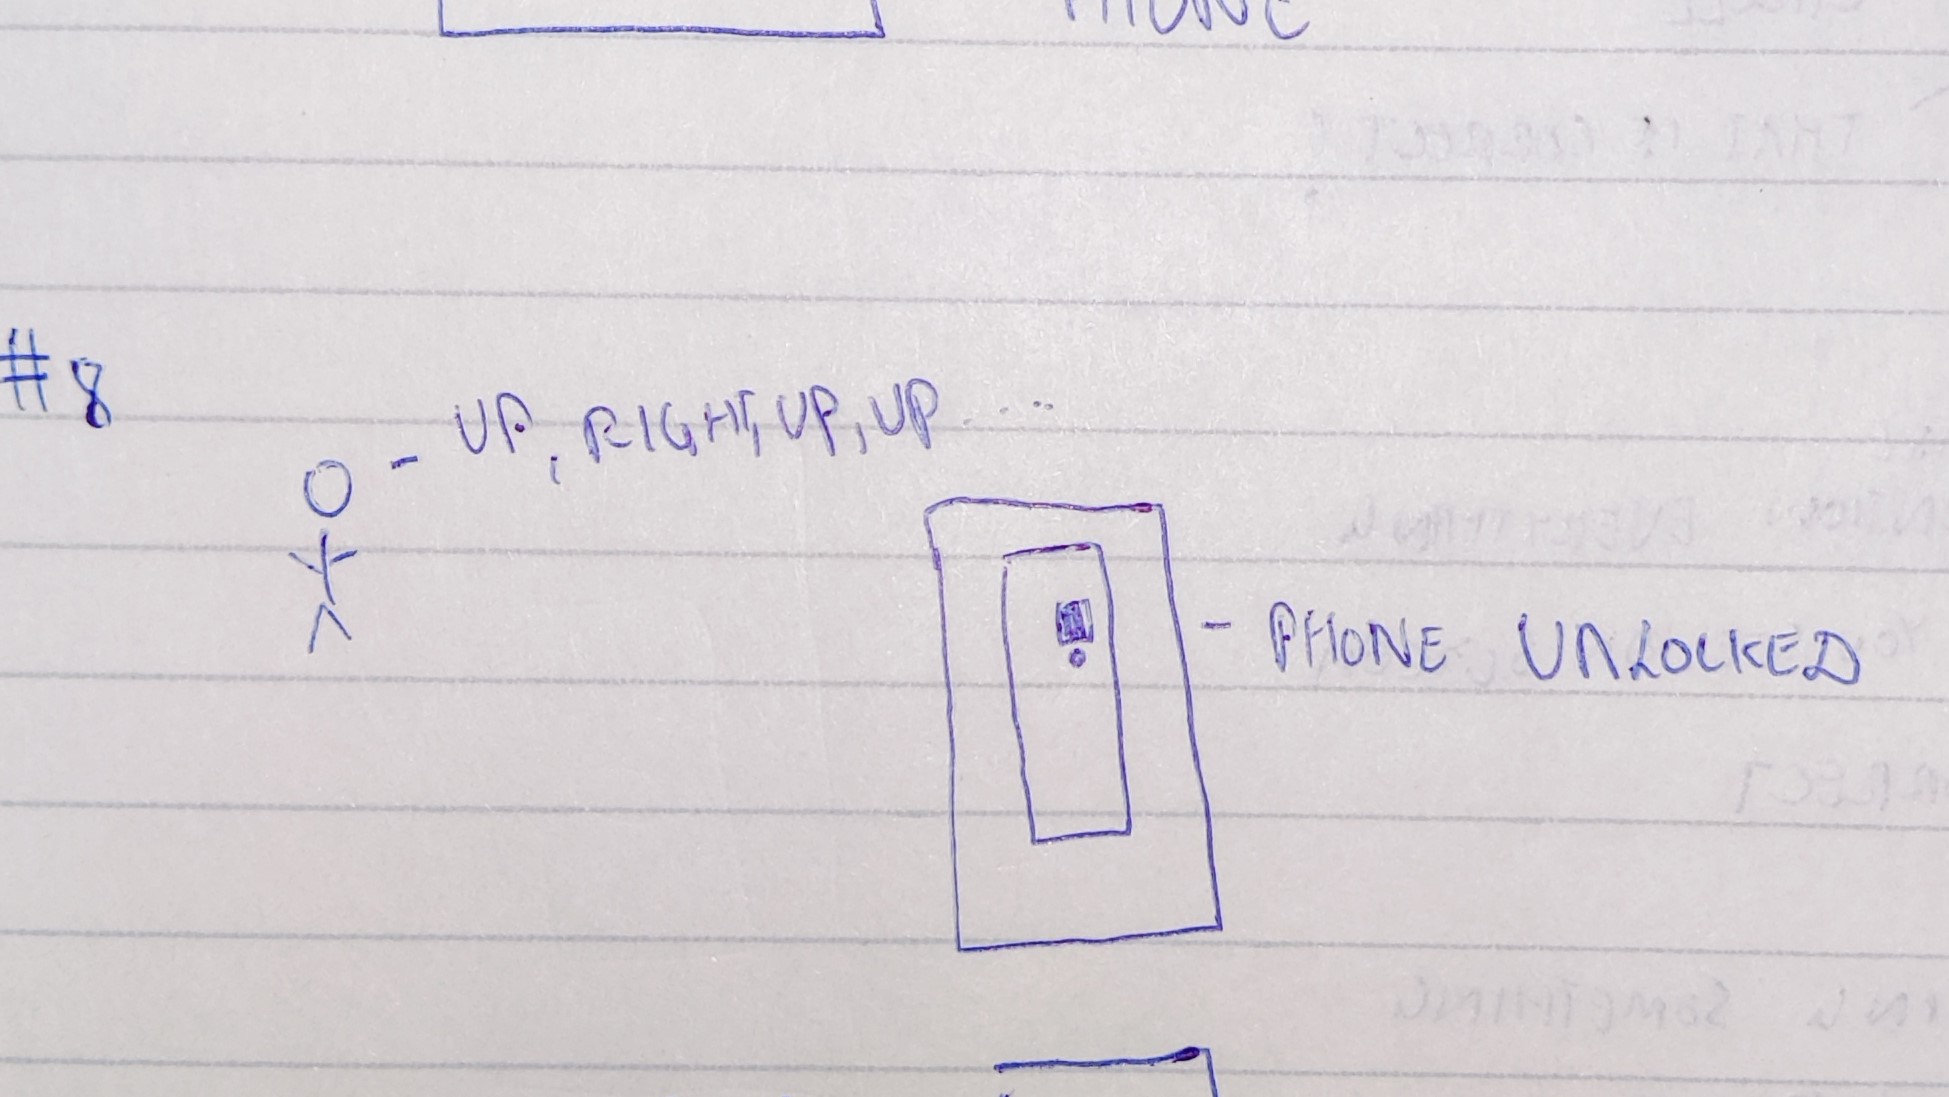 PHONE
#8
- UP, RIGHT, UP, UP.....
- PHONE UNLOCKED